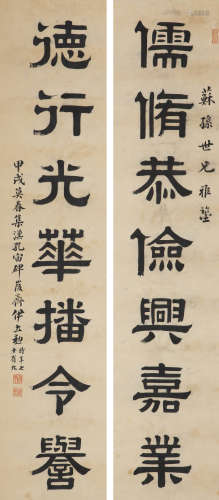 蘇孫世兄雅鑒
儒脩恭儉興嘉業
德行光華播令譽
甲戌莫春集漢孔宙碑